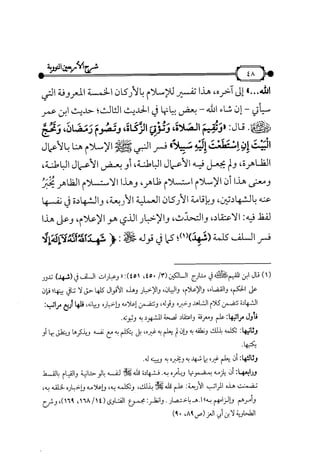 شرح الأربعين النووية
٤٨
الله...» إلى آخره، هذا تفسير للإسلام بالأركان الخمسة المعروفة التي
سيأتي - إن شاء الله - بعض بيانها في الحديث الثالث؛ حديث ابن عمر
ﷺ. قال: «وَتُقِيمَ الصَّلَاةَ، وَتُؤْتِيَ الزَّكَاةَ، وَتَصُومَ رَمَضَانَ، وَتَحُجَّ
الْبَيْتَ إِنِ اسْتَطَعْتَ إِلَيْهِ سَبِيلًا» فسر النبي ﷺ الإسلام هنا بالأعمال
الظاهرة، ولم يجعل فيه الأعمال الباطنة، أو بعض الأعمال الباطنة،
ومعنى هذا أن الإسلام استسلام ظاهر، وهذا الاستسلام الظاهر يُخْبَرُ
عنه بالشهادتين، وبإقامة الأركان العملية الأربعة، والشهادة في نفسها
لفظ فيه: الاعتقاد، والتحدُّث، والإخبار الذي هو الإعلام، وعلى هذا
فسر السلف كلمة (شَهِدَ)(١)؛ كما في قوله ﷻ: ﴿شَهِدَ ٱللَّهُ أَنَّهُۥ لَآ إِلَٰهَ إِلَّا
(١) قال ابن القيم ﷺ في مدارج السالكين (٣/ ٤٥٠، ٤٥١): «وعبارات السلف في (شهد) تدور
على الحكم، والقضاء، والإعلام، والبيان، والإخبار وهذه الأقوال كلها حق لا تنافي بينها؛ فإن
الشهادة تتضمن كلام الشاهد وخبره وقوله، وتتضمن إعلامه وإخباره وبيانه، فلها أربع مراتب:
فأول مراتبها: علم ومعرفة واعتقاد لصحة المشهود به وثبوته.
وثانيها: تكلمه بذلك ونطقه به وإن لم يعلم به غيره، بل يتكلم به مع نفسه ويذكرها وينطق بها أو
يكتبها.
وثالثها: أن يعلم غيره بما شهد به ويخبره به ويبينه له.
ورابعها: أن يلزمه بمضمونها ويأمره به. فشهادة الله ﷻ لنفسه بالوحدانية والقيام بالقسط
تضمنت هذه المراتب الأربعة: علم الله ﷻ بذلك، وتكلمه به، وإعلامه وإخباره لخلقه به،
وأمرهم وإلزامهم به» ا.هـ. باختصار. وانظر: مجموع الفتاوى (١٤/ ١٦٨، ١٦٩)، وشرح
الطحاوية لابن أبي العز (ص٨٩، ٩٠)